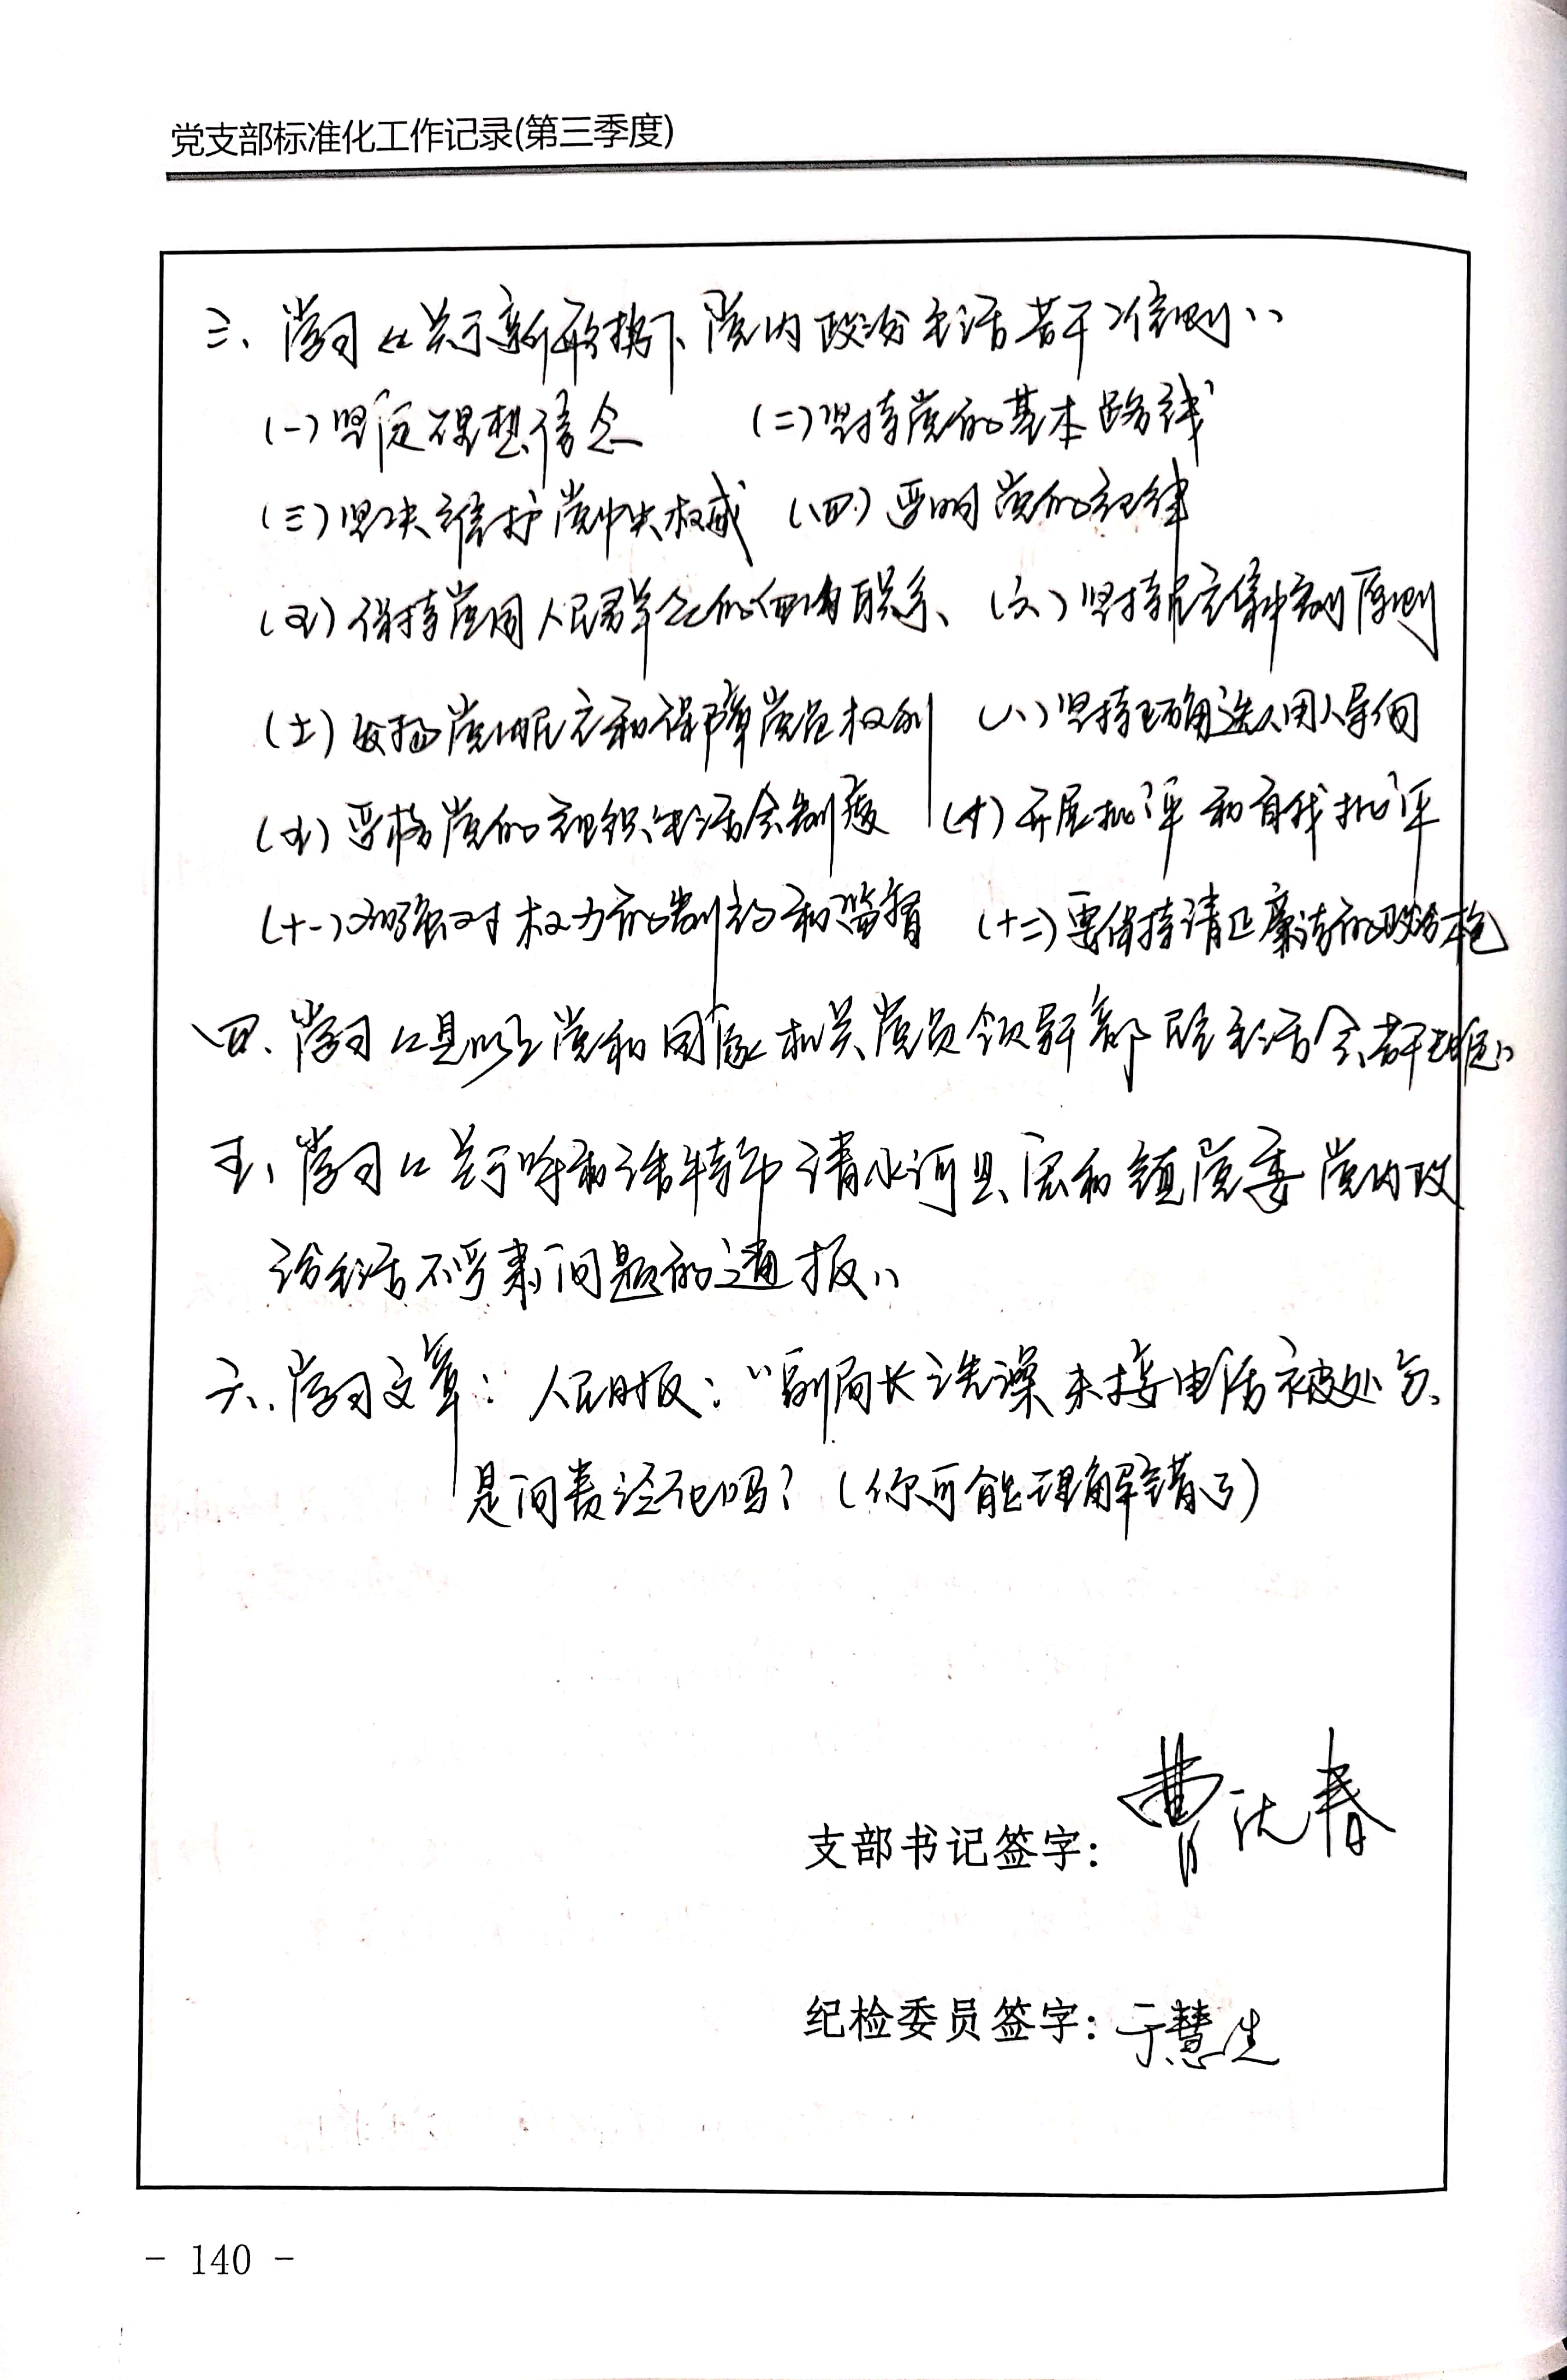 党支部标准化工作记录(第三季度)
三、学习《关于新形势下党内政治生活若干准则》
(一)坚定理想信念 (二)坚持党的基本路线
(三)坚决维护党中央权威 (四)严明党的纪律
(五)保持党同人民群众的血肉联系、(六)坚持民主集中制原则
(七)发扬党内民主和保障党员权利 (八)坚持正确选人用人导向
(九)严格党的组织生活会制度 (十)开展批评和自我批评
(十一)加强对权力的制约和监督 (十二)要保持清正廉洁的政治本色
四、学习《县以上党和国家机关党员领导干部民主生活会若干规定》
五、学习《关于呼和浩特市清水河县宏和镇党委党内政
治生活不严肃问题的通报》
六、学习文章:人民时报:“副局长洗澡未接电话被处分、
是问责泛化吗?(你可能理解错了)
支部书记签字:曹沈春
纪检委员签字:于慧生
- 140 -